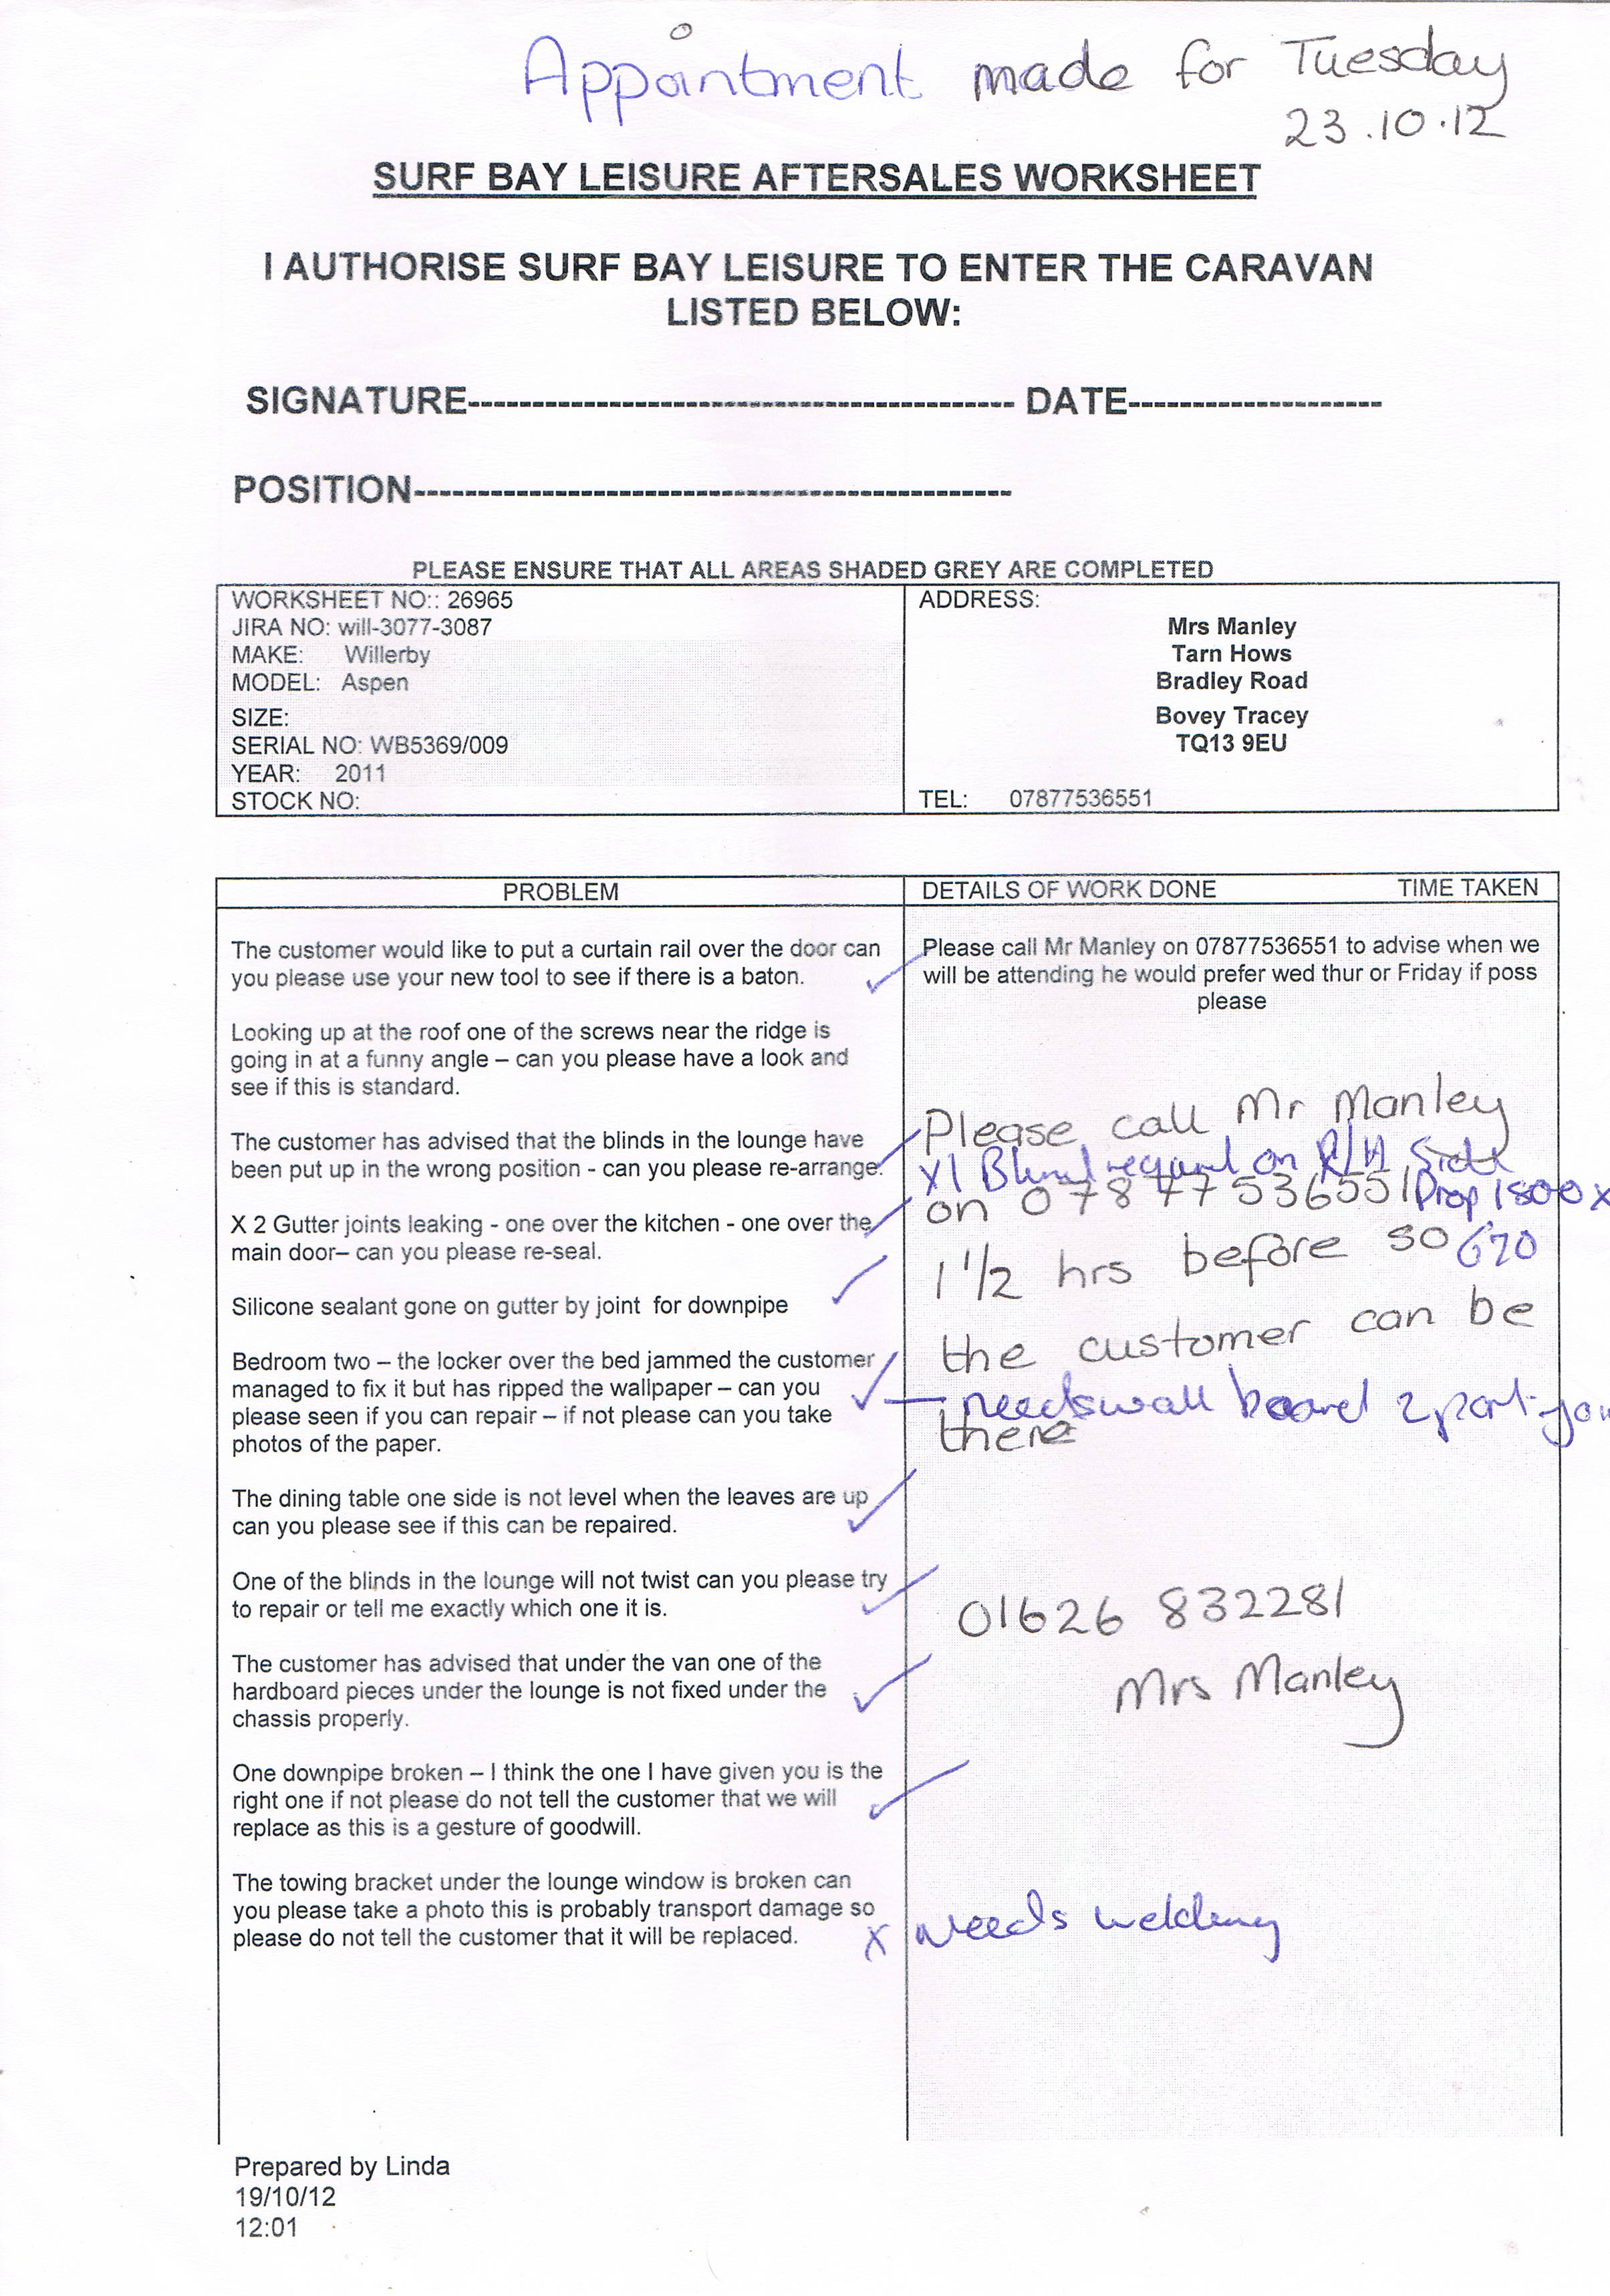 Appointment made for Tuesday
23.10.12
SURF BAY LEISURE AFTERSALES WORKSHEET
I AUTHORISE SURF BAY LEISURE TO ENTER THE CARAVAN
LISTED BELOW:
SIGNATURE------------------------------------------ DATE--------------------
POSITION----------------------------------------------
PLEASE ENSURE THAT ALL AREAS SHADED GREY ARE COMPLETED
WORKSHEET NO:: 26965
JIRA NO: will-3077-3087
MAKE: Willerby
MODEL: Aspen
SIZE:
SERIAL NO: WB5369/009
YEAR: 2011
STOCK NO:
ADDRESS:
Mrs Manley
Tarn Hows
Bradley Road
Bovey Tracey
TQ13 9EU
TEL: 07877536551
PROBLEM
The customer would like to put a curtain rail over the door can
you please use your new tool to see if there is a baton.
Looking up at the roof one of the screws near the ridge is
going in at a funny angle – can you please have a look and
see if this is standard.
The customer has advised that the blinds in the lounge have
been put up in the wrong position - can you please re-arrange.
X 2 Gutter joints leaking - one over the kitchen - one over the
main door– can you please re-seal.
Silicone sealant gone on gutter by joint for downpipe
Bedroom two – the locker over the bed jammed the customer
managed to fix it but has ripped the wallpaper – can you
please seen if you can repair – if not please can you take
photos of the paper.
The dining table one side is not level when the leaves are up
can you please see if this can be repaired.
One of the blinds in the lounge will not twist can you please try
to repair or tell me exactly which one it is.
The customer has advised that under the van one of the
hardboard pieces under the lounge is not fixed under the
chassis properly.
One downpipe broken – I think the one I have given you is the
right one if not please do not tell the customer that we will
replace as this is a gesture of goodwill.
The towing bracket under the lounge window is broken can
you please take a photo this is probably transport damage so
please do not tell the customer that it will be replaced.
DETAILS OF WORK DONE TIME TAKEN
Please call Mr Manley on 07877536551 to advise when we
will be attending he would prefer wed thur or Friday if poss
please
Please call Mr Manley
X1 Blind required on R/H Side
on 07877536551 Drop 1800 x
1 1/2 hrs before so 670
the customer can be
needs wall board 2 part
there
01626 832281
Mrs Manley
x Needs welding
Prepared by Linda
19/10/12
12:01